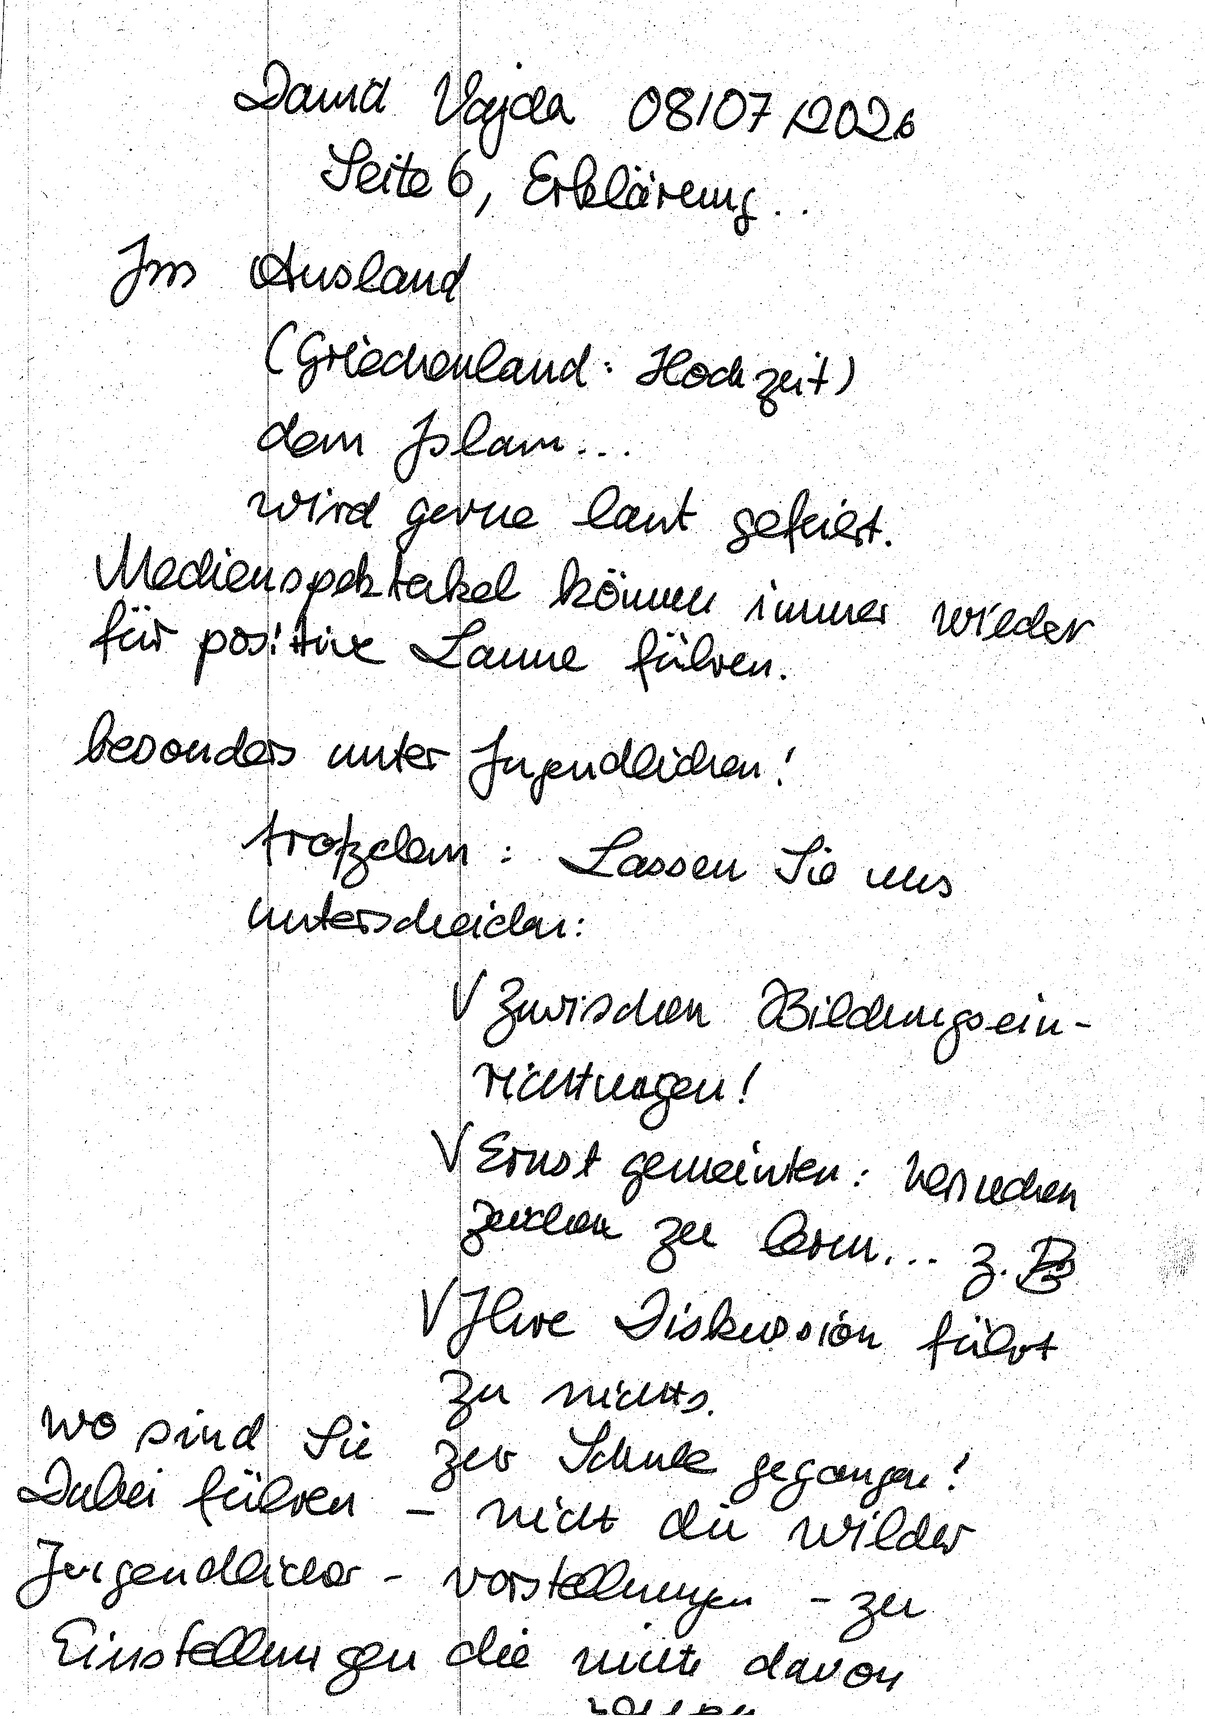 David Vajda 08/07/2026
Seite 6, Erklärung..
Im Ausland
(Griechenland: Hochzeit)
dem Islam...
wird gerne laut gefeiert.
Medienspektakel können immer wieder
für positive Laune führen.
besonders unter Jugendlichen!
trotzdem: Lassen Sie uns
unterscheiden:
V Zwischen Bildungsein-
richtungen!
V Ernst gemeinten: Versuchen
zu lern... z.B
V Ihre Diskussion führt
zu nichts.
wo sind Sie zur Schule gegangen!
Dabei führen - nicht die wilder
Jugendlicher - vorstellungen - zu
Einstellungen die nicht davon